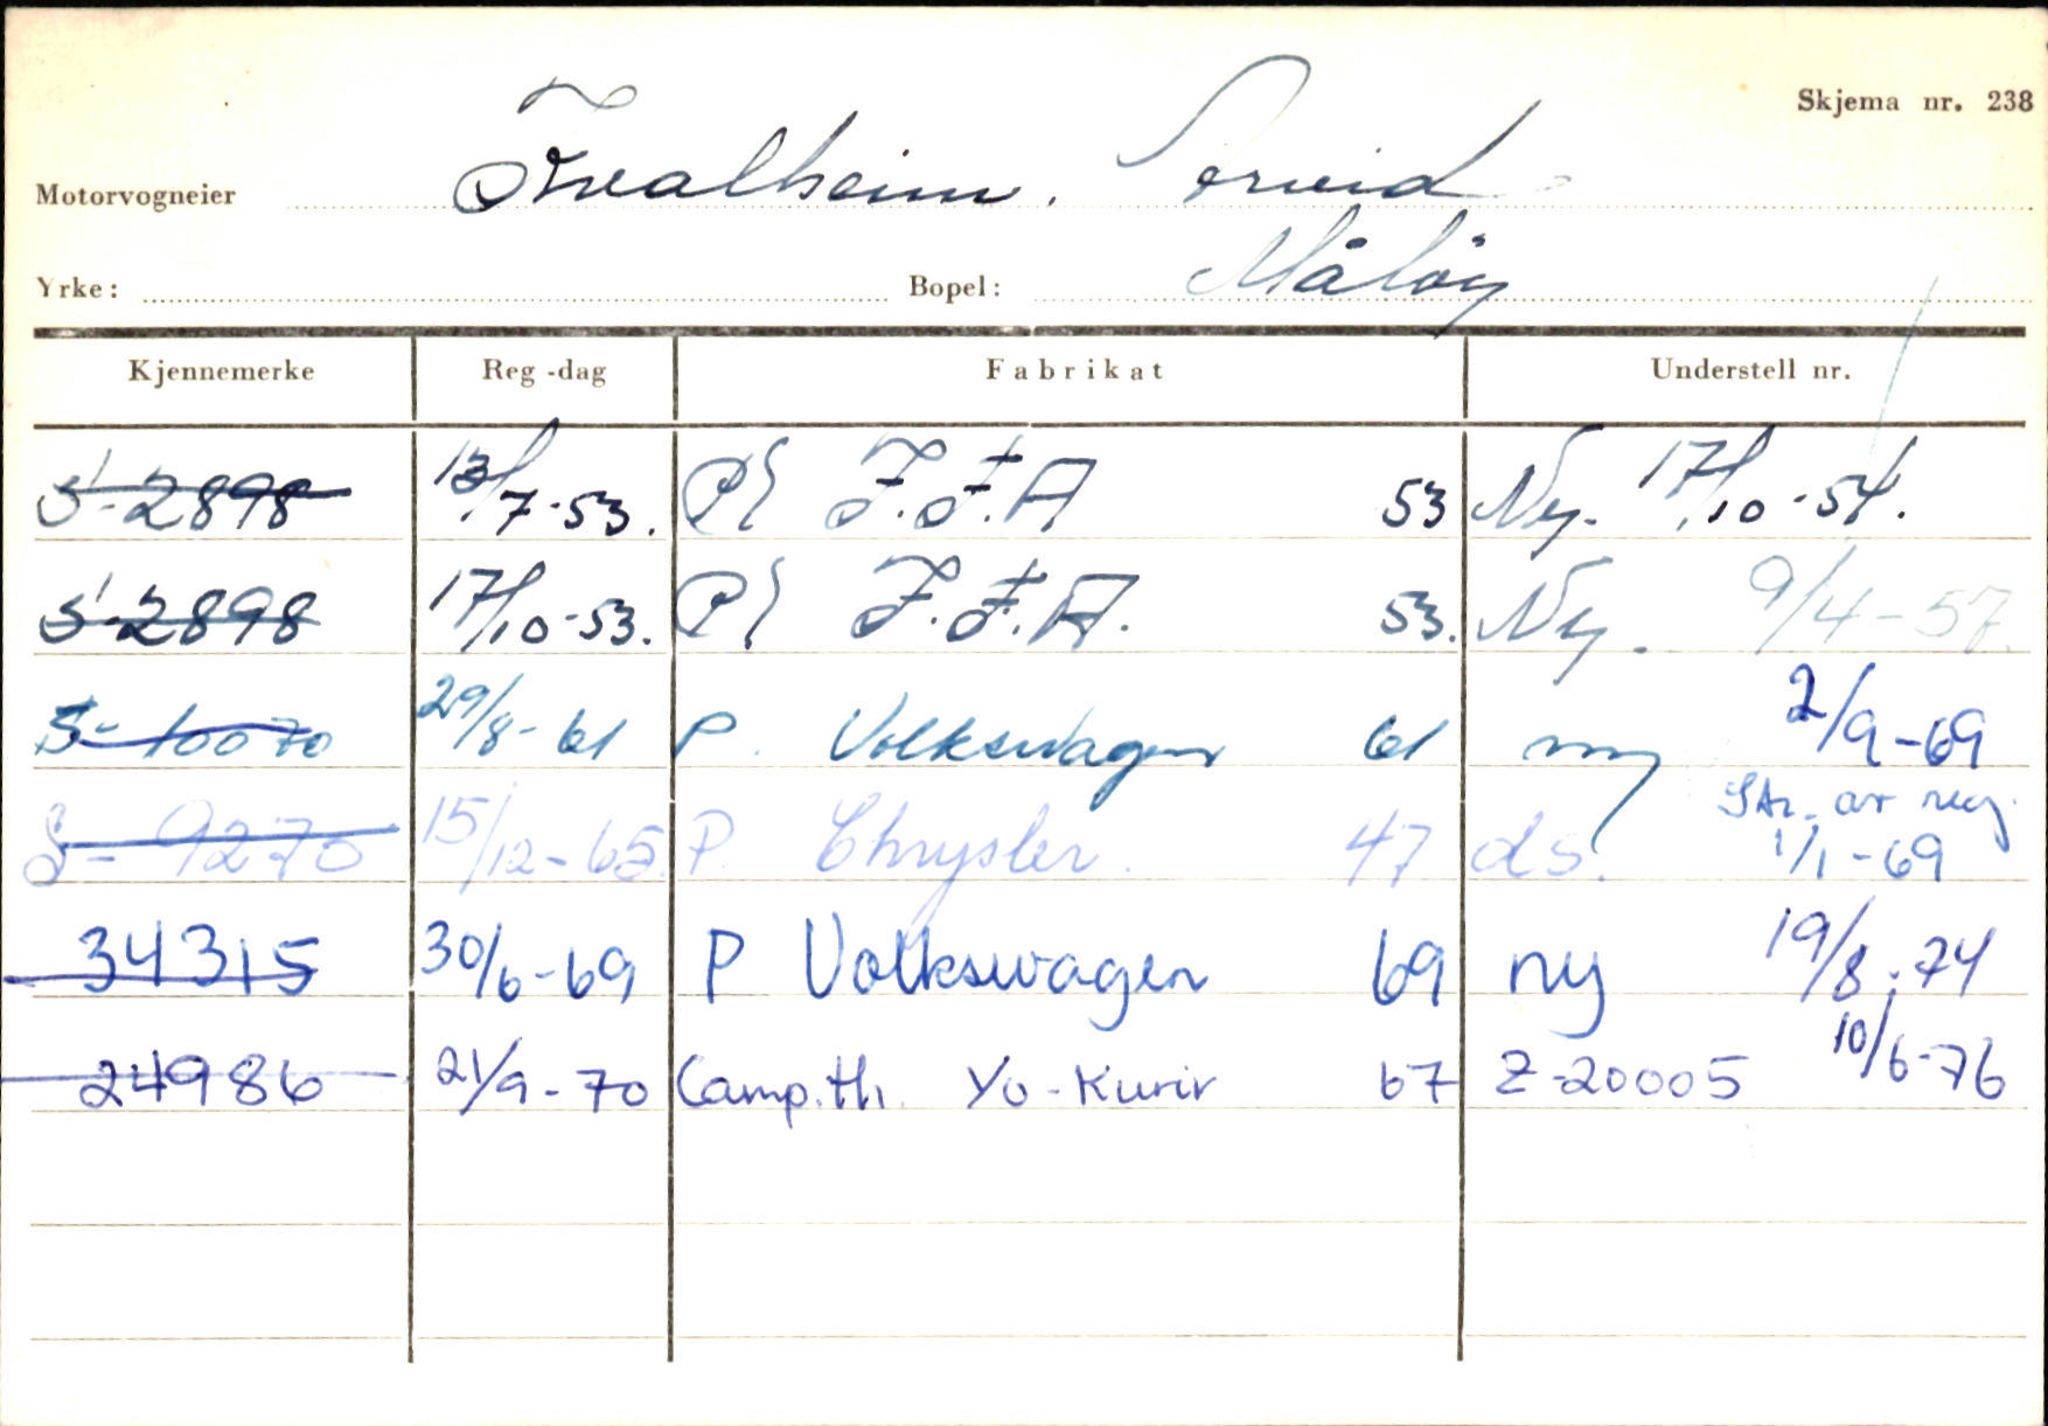 Skjema nr. 238
Motorvogneier Tvealheim, Arvid
Yrke: Bopel: Måløy
Kjennemerke Reg-dag Fabrikat Understell nr.
S-2898 13/7-53. P I.F.A 53 Ny. 17/10-54.
S-2898 17/10-53. P I.F.A. 53. Ny. 9/4-57.
S-10070 29/8-61 P. Volkswagen 61 ny 2/9-69
S-9270 15/12-65. P. Chrysler. 47 ds. Str. av reg. 1/1-69
34315 30/6-69 P Volkswagen 69 ny 19/8-74
24986 21/9-70 Camp.th. Yo-Kurir 67 Z-20005 10/6-76